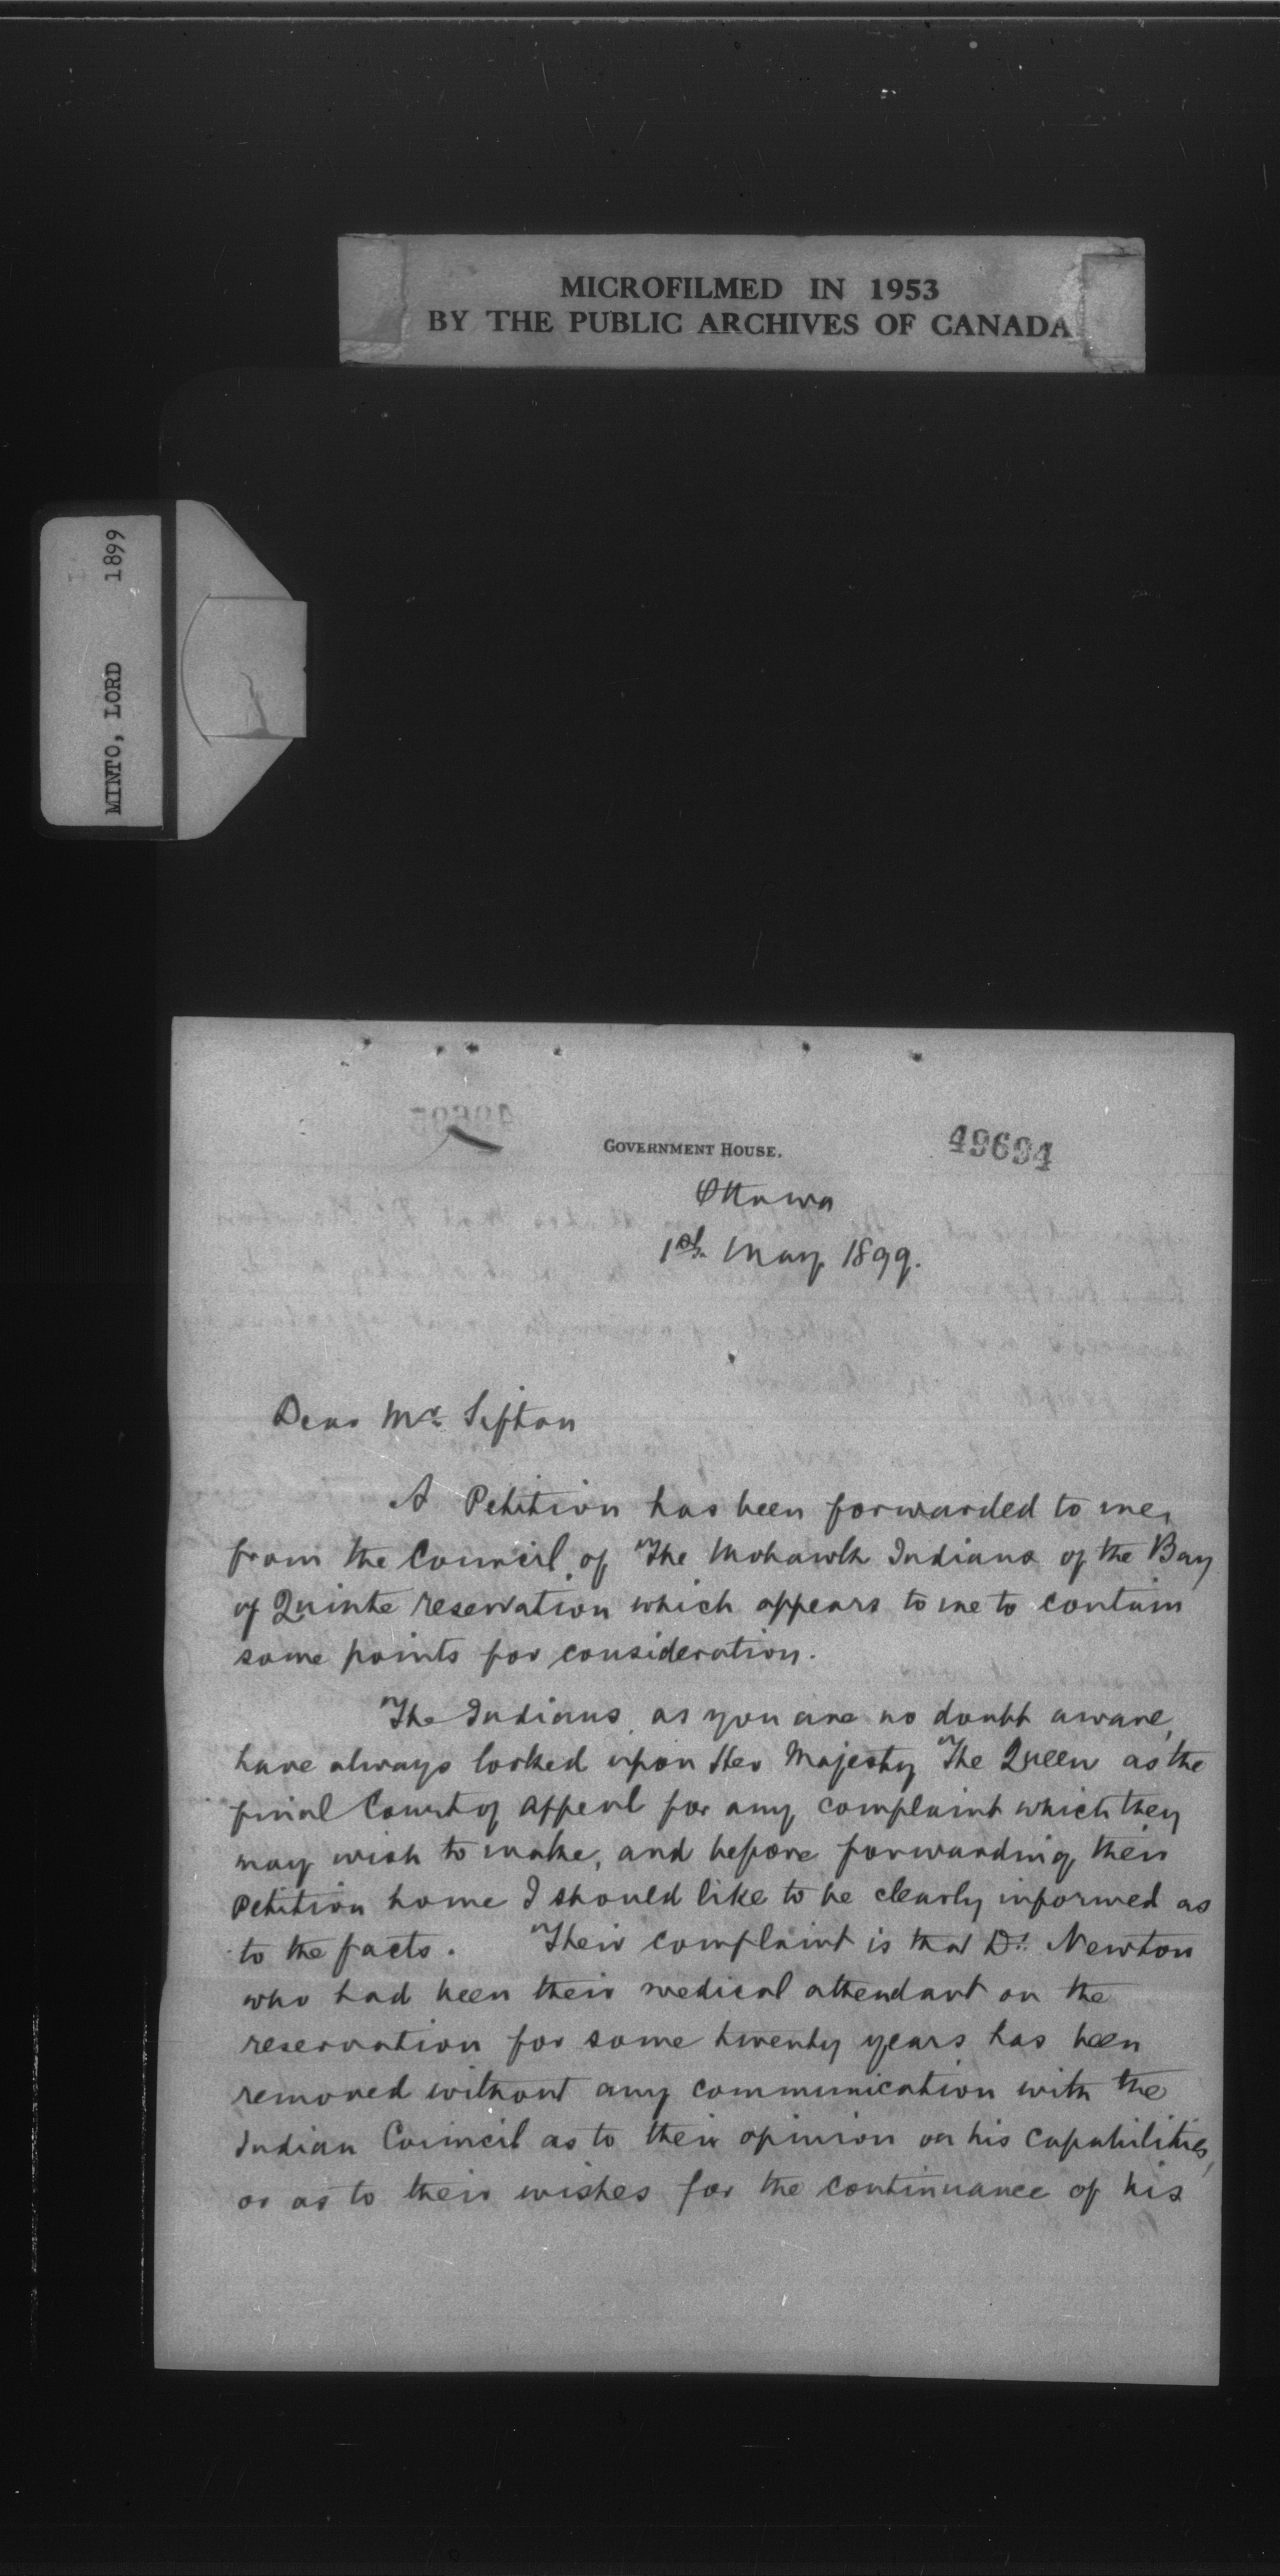 MICROFILMED IN 1953
BY THE PUBLIC ARCHIVES OF CANADA
MINTO, LORD 1899
49694
GOVERNMENT HOUSE.
Ottawa
1st May 1899.
Dear Mr. Sifton
A Petition has been forwarded to me,
from the Council of The Mohawk Indians of the Bay
of Quinte reservation which appears to me to contain
some points for consideration.
The Indians, as you are no doubt aware,
have always looked upon Her Majesty The Queen as the
final Court of Appeal for any complaint which they
may wish to make, and before forwarding their
Petition home I should like to be clearly informed as
to the facts. Their complaint is that Dr. Newton
who had been their medical attendant on the
reservation for some twenty years has been
removed without any communication with the
Indian Council as to their opinion on his capabilities,
or as to their wishes for the continuance of his